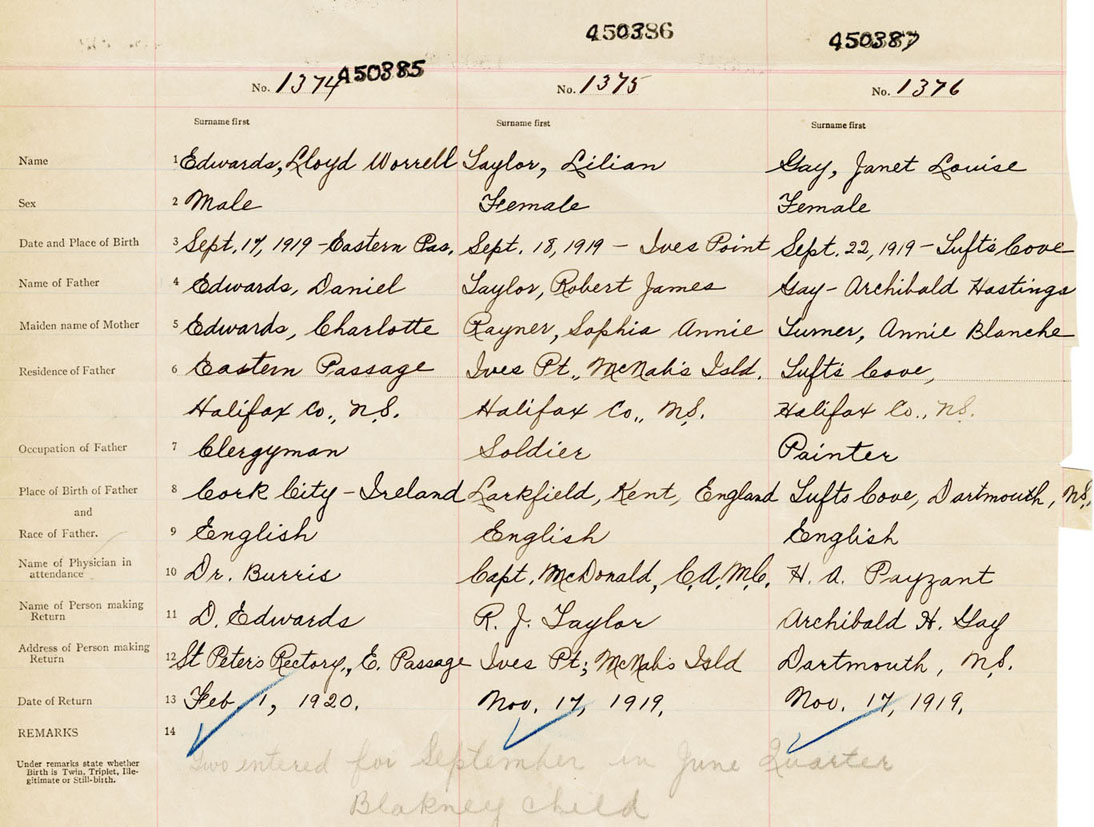 450386 450387
450385
No. 1374 No. 1375 No. 1376
Surname first Surname first Surname first
Name 1 Edwards, Lloyd Worrell Taylor, Lilian Gay, Janet Louise
Sex 2 Male Female Female
Date and Place of Birth 3 Sept. 17, 1919 - Eastern Pas. Sept. 18, 1919 - Ives Point Sept. 22, 1919 - Tufts Cove
Name of Father 4 Edwards, Daniel Taylor, Robert James Gay - Archibald Hastings
Maiden name of Mother 5 Edwards, Charlotte Rayner, Sophia Annie Turner, Annie Blanche
Residence of Father 6 Eastern Passage Ives Pt., McNab's Isld. Tuft's Cove,
Halifax Co., N.S. Halifax Co., N.S. Halifax Co., N.S.
Occupation of Father 7 Clergyman Soldier Painter
Place of Birth of Father 8 Cork City - Ireland Larkfield, Kent, England Tufts Cove, Dartmouth, N.S.
and
Race of Father. 9 English English English
Name of Physician in
attendance 10 Dr. Burris Capt. McDonald, C.A.M.C. H. A. Payzant
Name of Person making
Return 11 D. Edwards R. J. Taylor Archibald H. Gay
Address of Person making
Return 12 St Peter's Rectory, E. Passage Ives Pt; McNab's Isld Dartmouth, N.S.
Date of Return 13 Feb. 1, 1920. Nov. 17, 1919. Nov. 17, 1919.
REMARKS 14
Under remarks state whether
Birth is Twin, Triplet, Ille-
gitimate or Still-birth.
Two entered for September in June Quarter
Blakney child